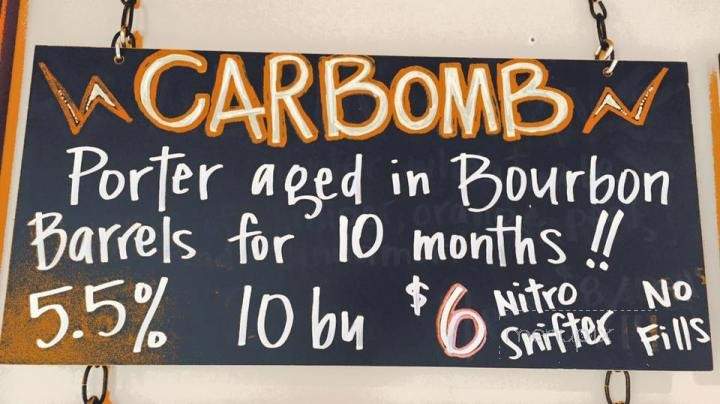 CARBOMB
Porter aged in Bourbon
Barrels for 10 months!!
5.5% 10 bu $6 Nitro Snifter No Fills